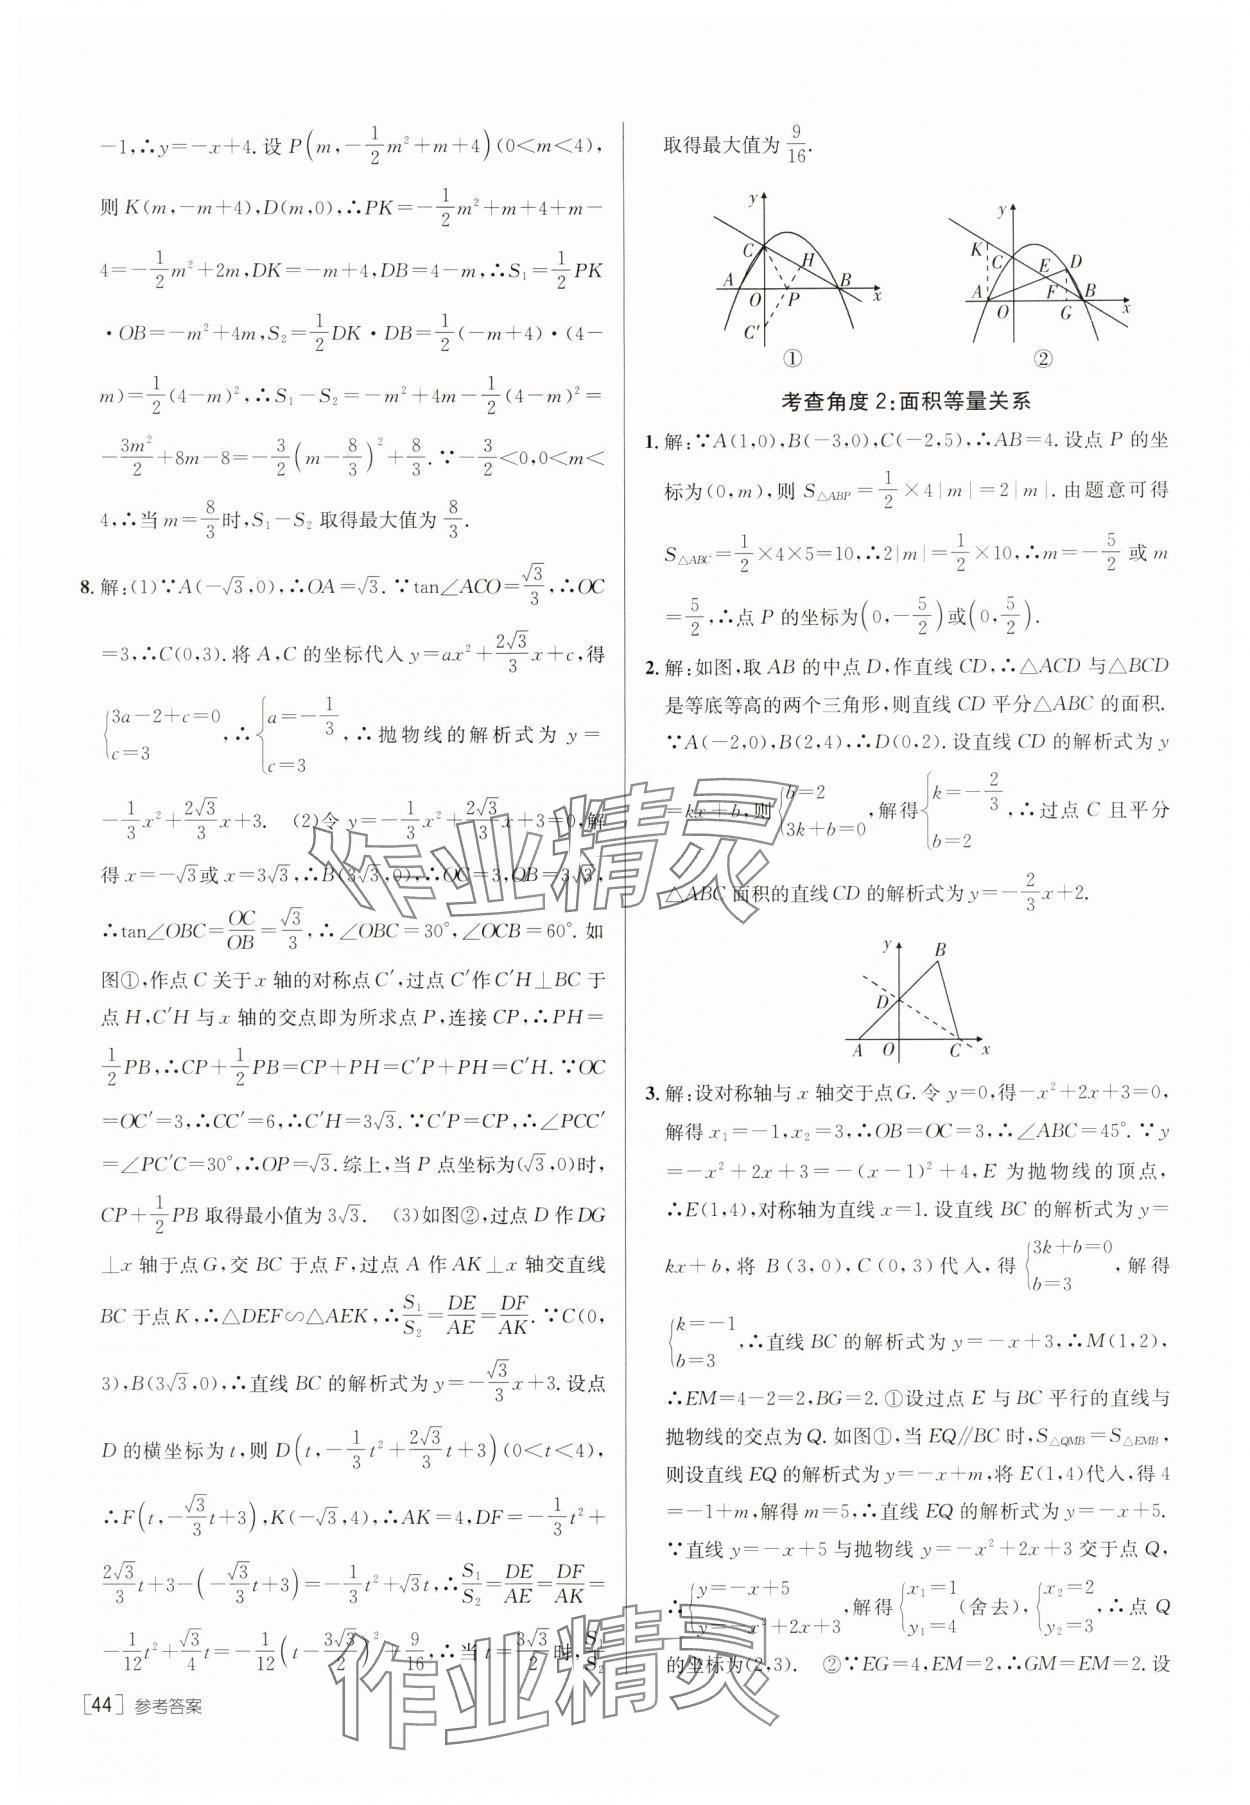 -1,∴y=-x+4.设 P(m,-1/2m²+m+4)(0<m<4),
则 K(m,-m+4),D(m,0),∴PK=-1/2m²+m+4+m-
4=-1/2m²+2m,DK=-m+4,DB=4-m,∴S₁=1/2PK
·OB=-m²+4m,S₂=1/2DK·DB=1/2(-m+4)·(4-
m)=1/2(4-m)²,∴S₁-S₂=-m²+4m-1/2(4-m)²=
-3m²/2+8m-8=-3/2(m-8/3)²+8/3.∵-3/2<0,0<m<
4,∴当 m=8/3时,S₁-S₂取得最大值为8/3.
8.解:(1)∵A(-√3,0),∴OA=√3.∵tan∠ACO=√3/3,∴OC
=3,∴C(0,3).将 A,C 的坐标代入 y=ax²+2√3/3x+c,得
{3a-2+c=0 c=3,∴{a=-1/3 c=3,∴抛物线的解析式为 y=
-1/3x²+2√3/3x+3. (2)令 y=-1/3x²+2√3/3x+3=0,解
得 x=-√3或 x=3√3,∴B(3√3,0),∴OC=3,OB=3√3,
∴tan∠OBC=OC/OB=√3/3,∴∠OBC=30°,∠OCB=60°.如
图①,作点 C 关于 x 轴的对称点 C′,过点 C′作 C′H⊥BC 于
点 H,C′H 与 x 轴的交点即为所求点 P,连接 CP,∴PH=
1/2PB,∴CP+1/2PB=CP+PH=C′P+PH=C′H.∵OC
=OC′=3,∴CC′=6,∴C′H=3√3.∵C′P=CP,∴∠PCC′
=∠PC′C=30°,∴OP=√3.综上,当 P 点坐标为(√3,0)时,
CP+1/2PB取得最小值为 3√3. (3)如图②,过点 D 作 DG
⊥x 轴于点 G,交 BC 于点 F,过点 A 作 AK⊥x 轴交直线
BC 于点 K,∴△DEF∽△AEK,∴S₁/S₂=DE/AE=DF/AK.∵C(0,
3),B(3√3,0),∴直线 BC 的解析式为 y=-√3/3x+3.设点
D 的横坐标为 t,则 D(t,-1/3t²+2√3/3t+3)(0<t<4),
∴F(t,-√3/3t+3),K(-√3,4),∴AK=4,DF=-1/3t²+
2√3/3t+3-(-√3/3t+3)=-1/3t²+√3t,∴S₁/S₂=DE/AE=DF/AK=
-1/12t²+√3/4t=-1/12(t-3√3/2)²+9/16,∴当 t=3√3/2时,S₁/S₂
[44]参考答案
取得最大值为9/16.
y
K
C
A
H
B
O
P
x
C′
①
y
K
C
E
D
F
A
O
G
B
x
②
考查角度2:面积等量关系
1.解:∵A(1,0),B(-3,0),C(-2,5),∴AB=4.设点 P 的坐
标为(0,m),则 S△ABP=1/2×4|m|=2|m|.由题意可得
S△ABC=1/2×4×5=10,∴2|m|=1/2×10,∴m=-5/2或 m
=5/2,∴点 P 的坐标为(0,-5/2)或(0,5/2).
2.解:如图,取 AB 的中点 D,作直线 CD,∴△ACD 与△BCD
是等底等高的两个三角形,则直线 CD 平分△ABC 的面积.
∵A(-2,0),B(2,4),∴D(0,2).设直线 CD 的解析式为 y
=kx+b,则{b=2 3k+b=0,解得{k=-2/3 b=2,∴过点 C 且平分
△ABC 面积的直线 CD 的解析式为 y=-2/3x+2.
y
B
D
A
O
C
x
3.解:设对称轴与 x 轴交于点 G.令 y=0,得-x²+2x+3=0,
解得 x₁=-1,x₂=3,∴OB=OC=3,∴∠ABC=45°.∵y
=-x²+2x+3=-(x-1)²+4,E 为抛物线的顶点,
∴E(1,4),对称轴为直线 x=1.设直线 BC 的解析式为 y=
kx+b,将 B(3,0),C(0,3)代入,得{3k+b=0 b=3,解得
{k=-1 b=3,∴直线 BC 的解析式为 y=-x+3,∴M(1,2),
∴EM=4-2=2,BG=2.①设过点 E 与 BC 平行的直线与
抛物线的交点为 Q.如图①,当 EQ∥BC 时,S△QMB=S△EMB,
则设直线 EQ 的解析式为 y=-x+m,将 E(1,4)代入,得 4
=-1+m,解得 m=5,∴直线 EQ 的解析式为 y=-x+5.
∵直线 y=-x+5 与抛物线 y=-x²+2x+3 交于点 Q,
∴{y=-x+5 y=-x²+2x+3,解得{x₁=1 y₁=4(舍去),{x₂=2 y₂=3,∴点 Q
的坐标为(2,3). ②∵EG=4,EM=2,∴GM=EM=2.设
作业精灵
作业精灵